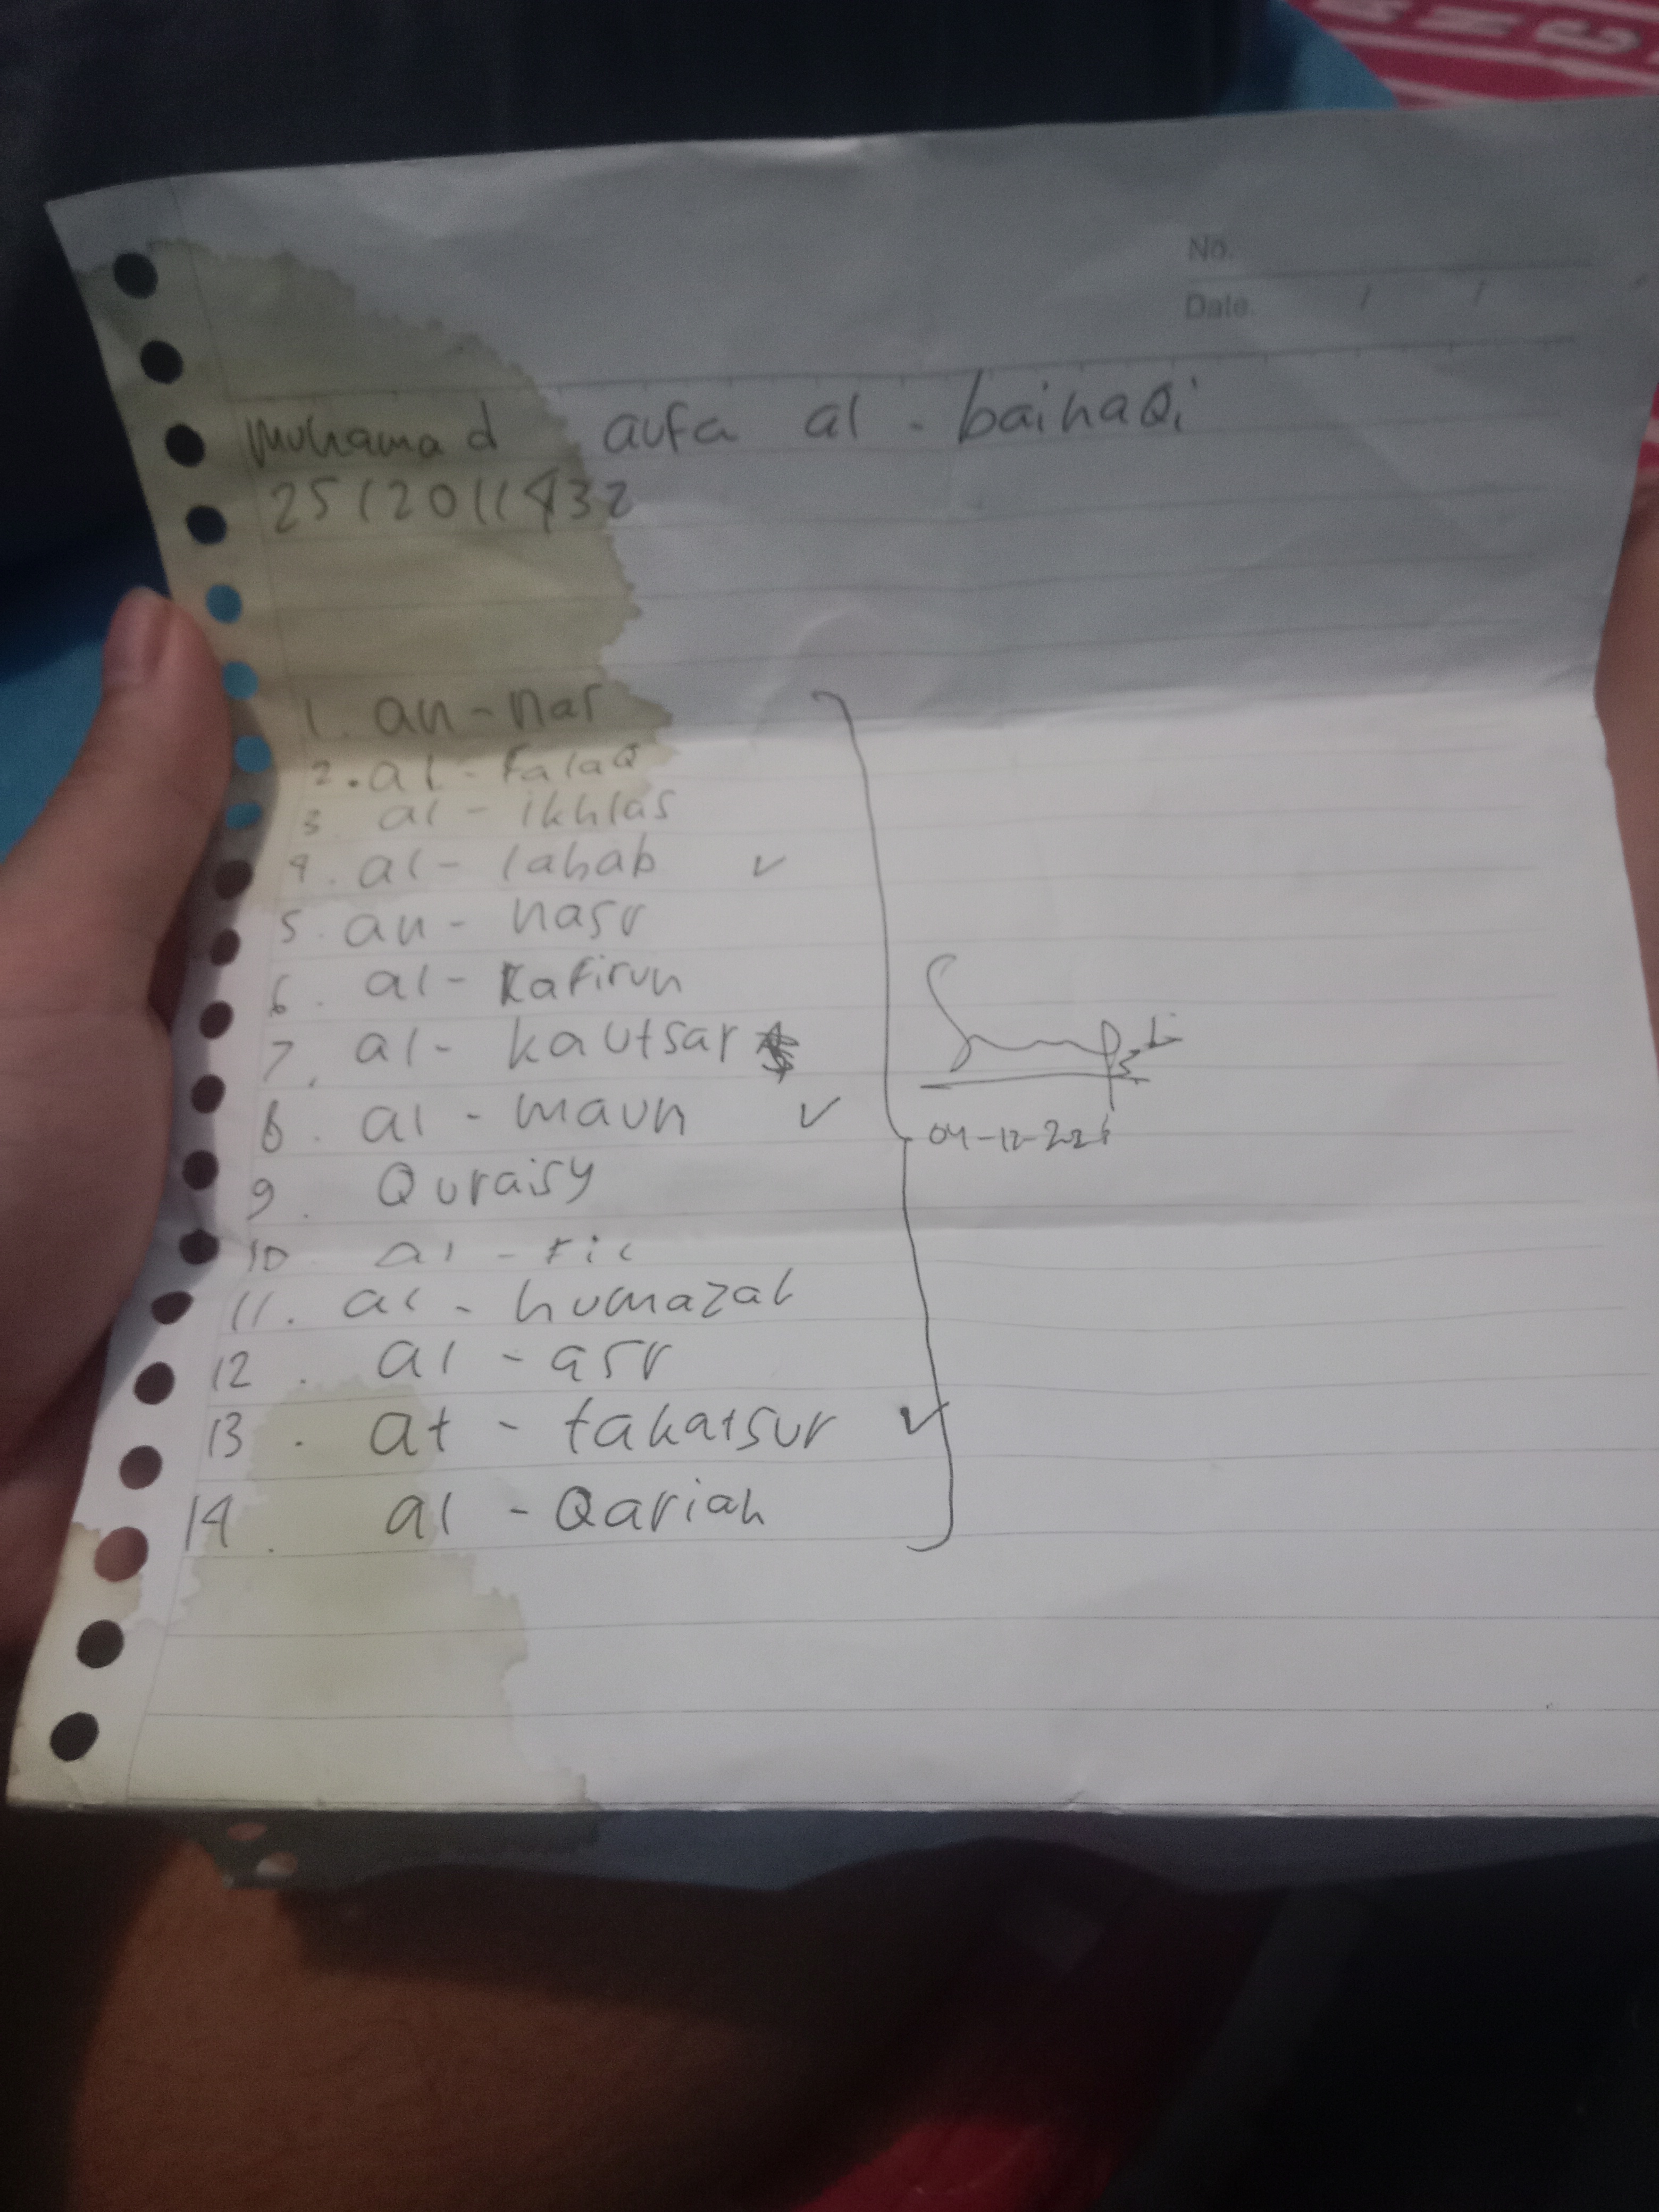 No.
Date. / /
Muhamad aufa al - baihaQi
2512011432
1. an - nas
2. al - FalaQ
3 al - ikhlas
4. al - lahab ✓
5. an - nasr
6. al - Kafirun
7. al - kautsar
8. al - maun ✓
9. Quraisy
10. al - Fil
11. al - humazah
12. al - asr
13. at - takatsur ✓
14. al - Qariah